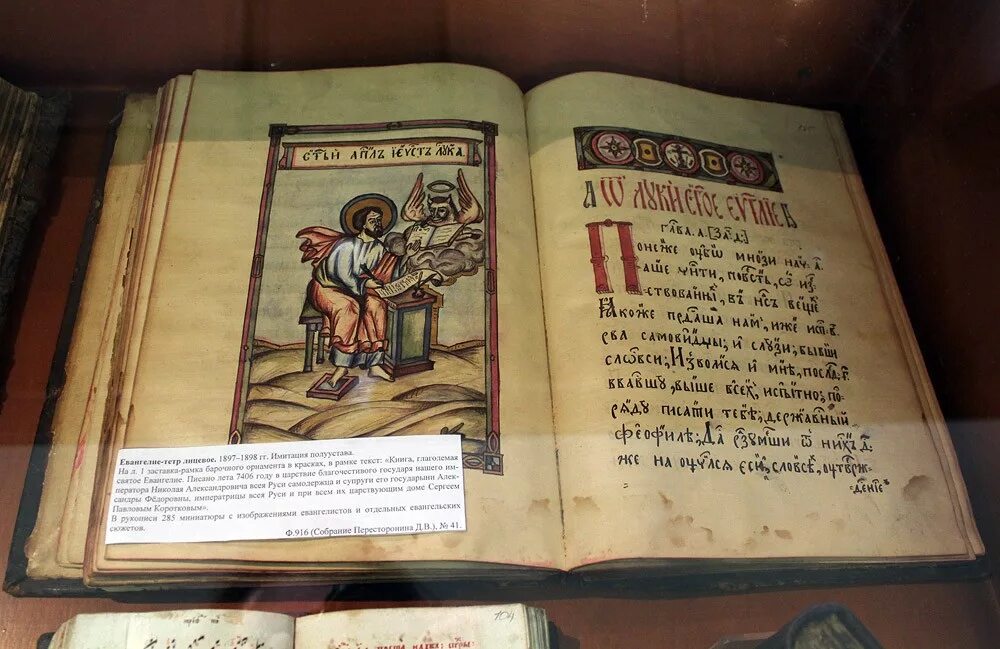 СТЫЙ АПЛЪ ІЕѴСТЪ ЛУКА.
Ѿ ЛУКИ СТОЕ ЕѴГЛІЕ
ГЛВА. А. [ЗА. Д.]
Понеже ѹбѡ мнози нач
аше чинити, повѣсть, ѡ из
вѣствованный, въ насъ веще
Якоже предаша нам, иже исперва
самовидцы; и слузи, бывши
словеси; Изволися и мнѣ, послѣд
вавшу, выше всех, испытно; по
ряду писати тебѣ; державный
Феофиле; Да разумѣши ѡ нихъ
же научился еси, словесѣ, утверж
дение
Евангелие-тетр лицевое. 1897–1898 гг. Имитация полуустава.
На л. 1 заставка-рамка барочного орнамента в красках, в рамке текст: «Книга, глаголемая
святое Евангелие. Писано лета 7406 году в царствие благочестивого государя нашего им-
ператора Николая Александровича всея Руси самодержца и супруги его государыни Алек-
сандры Фёдоровны, императрицы всея Руси и при всем их царствующим доме Сергеем
Павловым Коротковым».
В рукописи 285 миниатюры с изображениями евангелистов и отдельных евангельских
сюжетов.
Ф.916 (Собрание Пересторонина Д.В.), № 41.
104